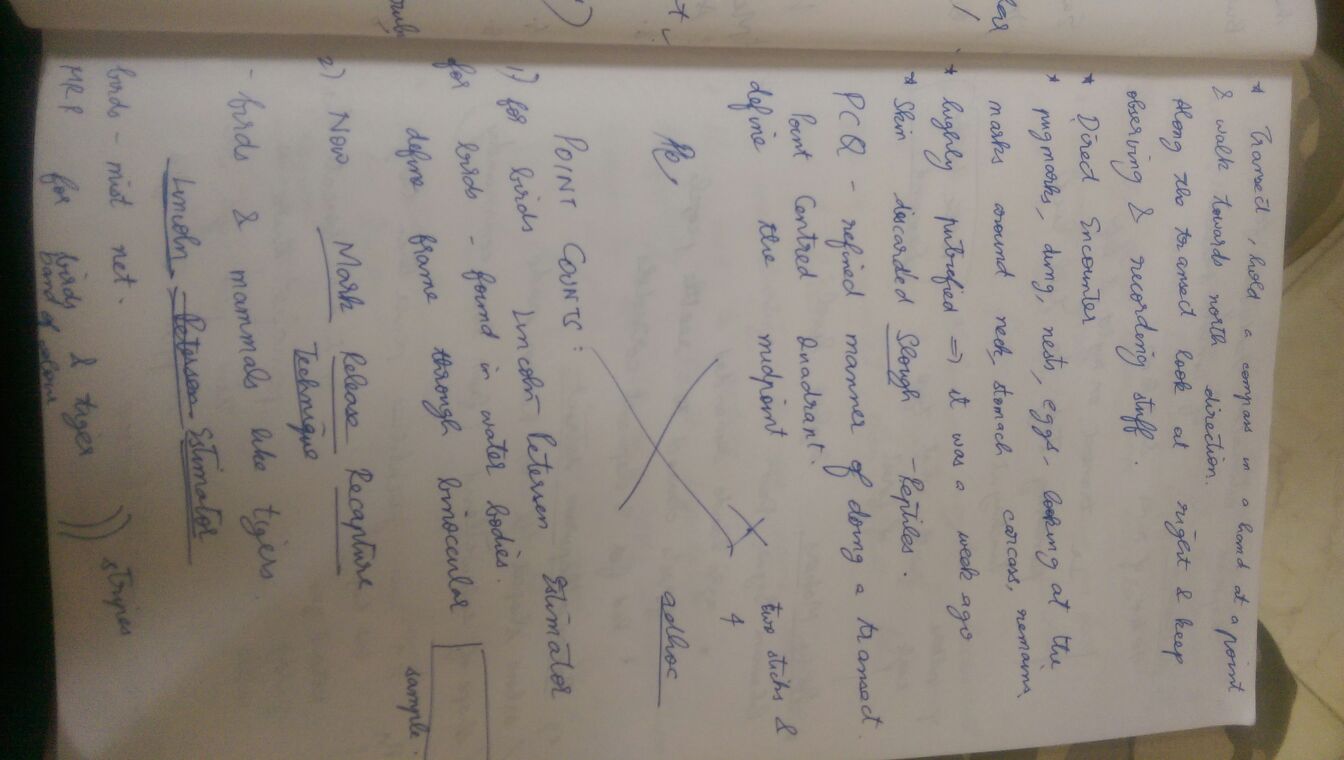 * Transect, hold a compass in a hand at a point
& walk towards north direction.
Along the transect look at right & keep
observing & recording stuff.
* Direct Encounter
* pugmarks, dung, nests, eggs, looking at the
marks around neck, stomach carcass, remains
* highly putrefied => it was a week ago
* Skin discarded Slough - Reptiles.
PCQ - refined manner of doing a transect.
Point Centred Quadrant.
define the midpoint two sticks &
4
adhoc
POINT COUNTS:
1) for birds Lincoln Petersen Estimator
for birds - found in water bodies.
define frame through binocular
sample.
2) Now Mark Release Recapture
Technique
- birds & mammals like tigers.
Lincoln - Peterson - Estimator
birds - mist net.
MRP for birds & tiger )) stripes
band of colour